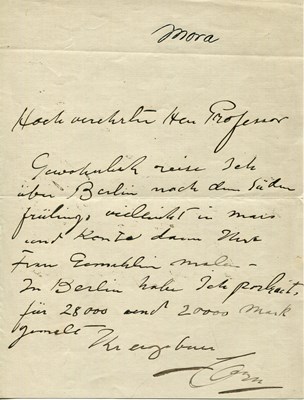 Mora
Hochverehrter Herr Professor
Gewohnlich reise Ich
über Berlin nach dem Süden
frühlings vielleicht in mars
und Könte dann Ihre
frau Gemahlin malen –
In Berlin habe Ich portraits
für 25000 und 20000 Mark
gemalt
Ihr ergebener
Zorn